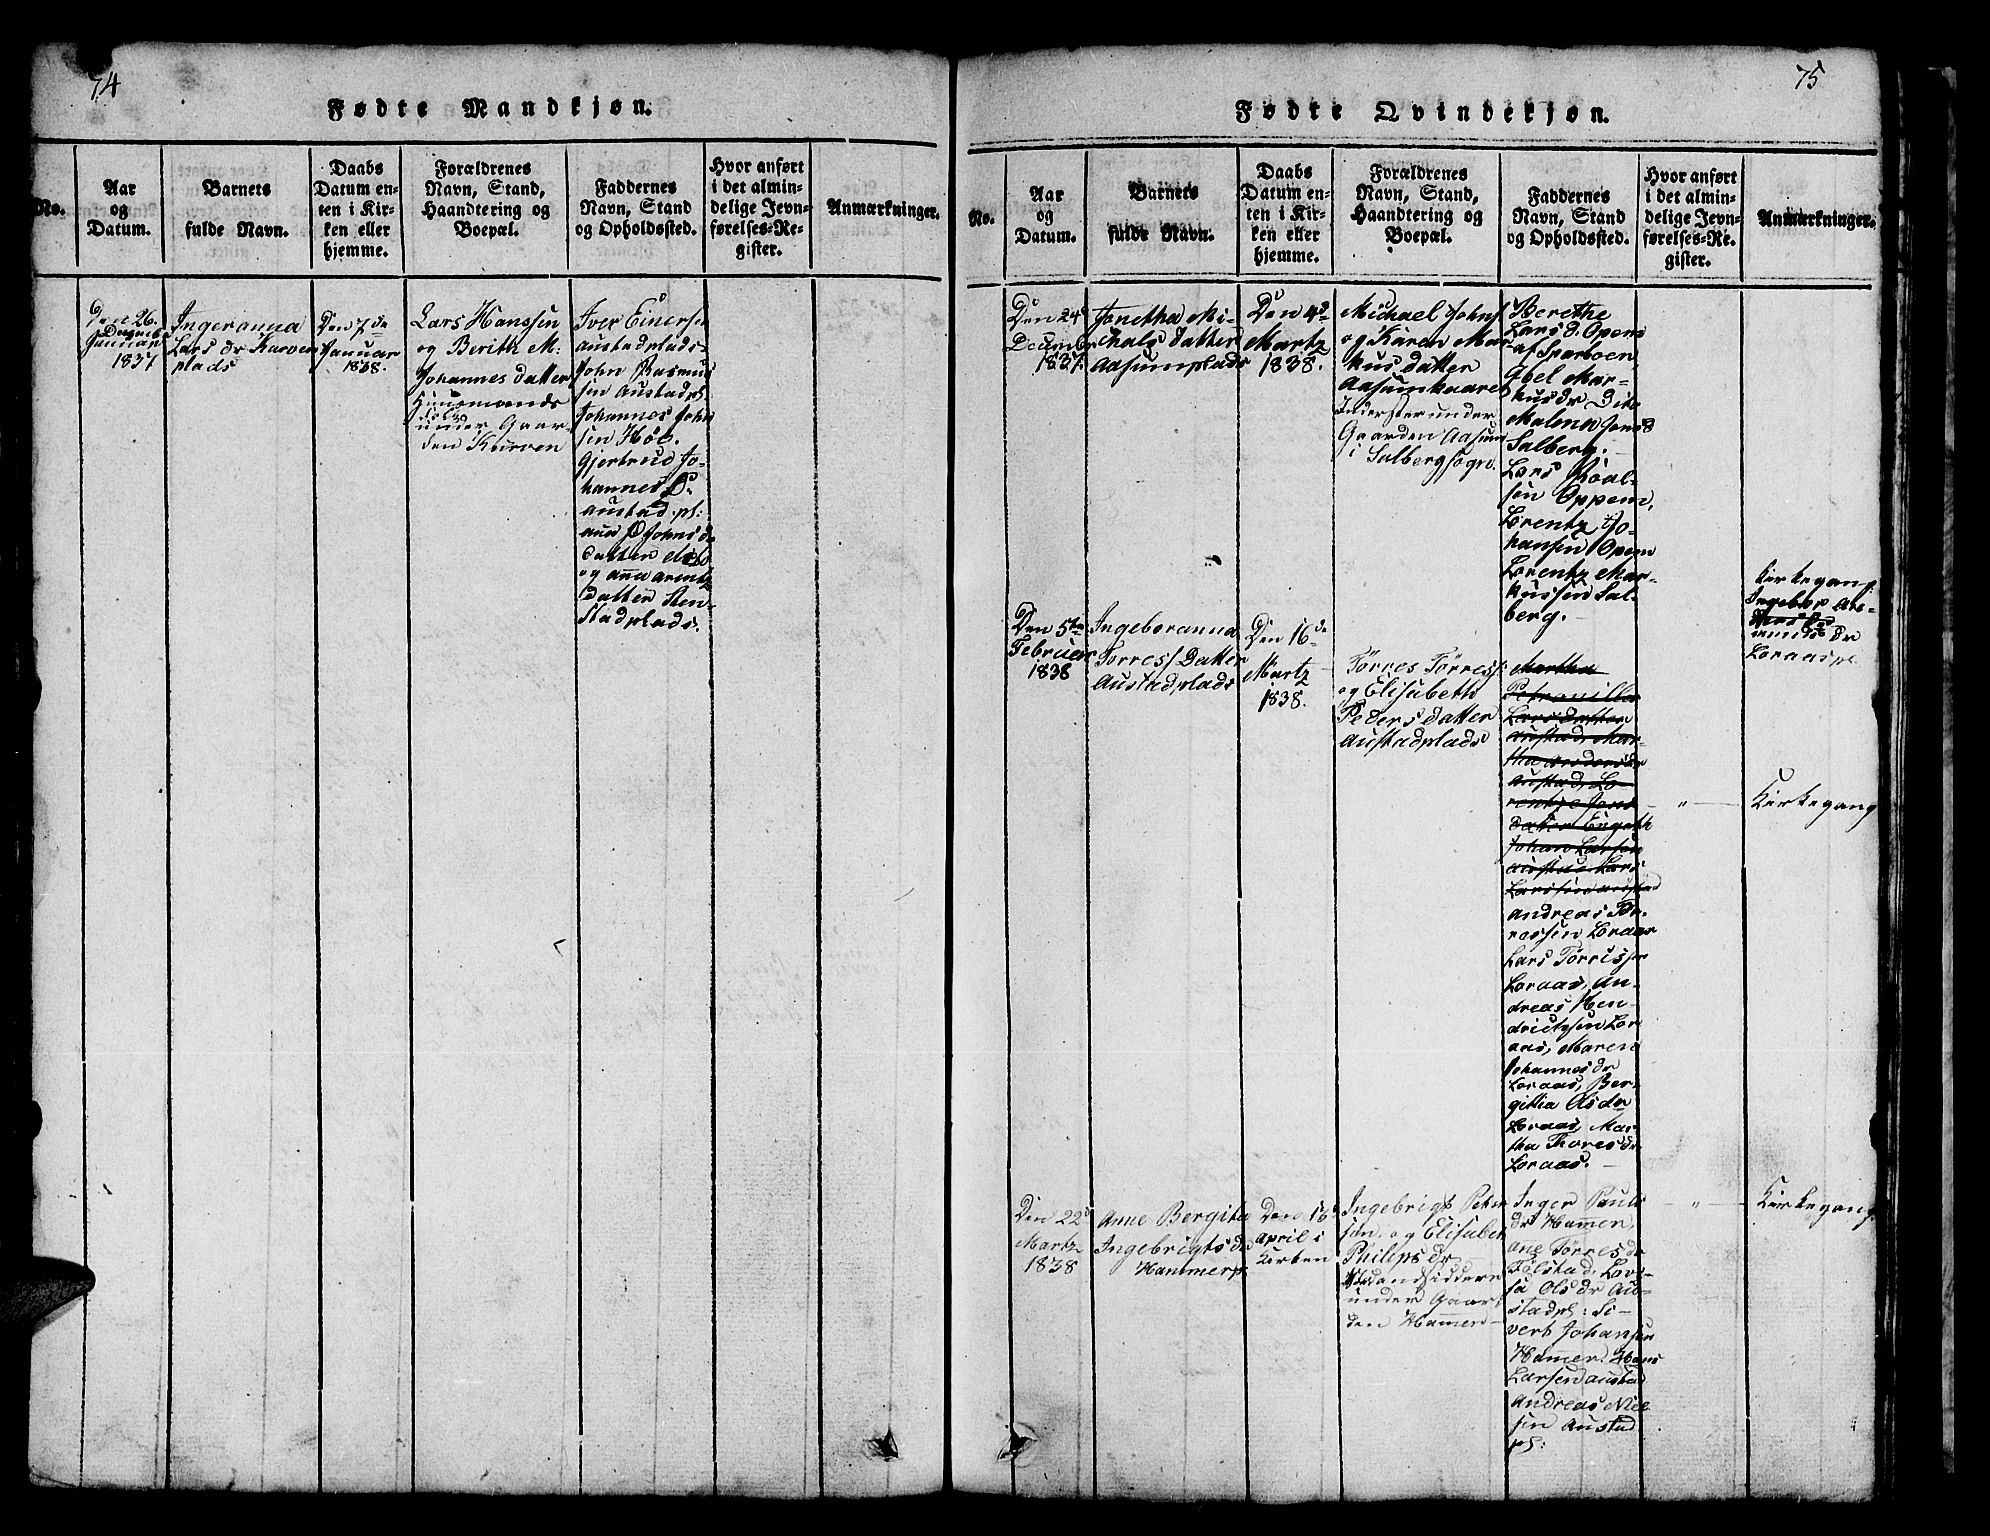 74
Fødte Mandkjøn.
No.
Aar
og
Datum.
Barnets
fulde Navn.
Daabs
Datum en-
ten i Kir-
ken eller
hjemme.
Forældrenes
Navn, Stand,
Haandtering og
Boepæl.
Faddernes
Navn, Stand
og Opholdssted.
Hvor anført
i det almin-
delige Jevn-
førelses-Re-
gister.
Anmærkninger.
Den 26.
Decemb
Januar
1837
Ingeranna
Lars dr Kurven
plads
Den 7de
Januar
1838.
Lars Hanssen
og Berith M:
Johannes datter
Huusmands
folk
under Gaar-
den Kurven
Iver Einersen
Austadplads
John Rasmus
sen Austadpl
Johannes John
sen Høe.
Gjertrud Jo-
hannes D.
Austad pl:
Johns
datter
og Anna Arentz
datter Sten-
stadplads.
75
Fødte Qvindekjøn.
No.
Aar
og
Datum.
Barnets
fulde Navn.
Daabs
Datum en-
ten i Kir-
ken eller
hjemme.
Forældrenes
Navn, Stand,
Haandtering og
Boepæl.
Faddernes
Navn, Stand
og Opholdssted.
Hvor anført
i det almin-
delige Jevn-
førelses-Re-
gister.
Anmærkninger.
Den 24d
Decembr
1837.
Jonetha Mi-
chals datter
Aasumplads
Den 4d
Martz
1838.
Michael Johns
og Karen Mar
kus datter
Aasumkaaret
Inderster under
Gaarden Aasum
i Salbergsogn.
Berethe
Lars d. Opem
af Sparboen
Abel Mar-
kus dr
Malena Jens d
Salberg.
Lars Roal-
sen Oppem,
Lorentz Jo-
hansen Opem
Lorentz Mar-
kussen Sal-
berg.
Kirkegang
Ingebor An-
munds dr
Loraaspl
Den 5te
Februar
1838
Ingeboranna
Torress Datter
Austadplads
Den 16de
Martz
1838.
Tørres Tørress:
og Elisabeth
Peders datter
Austadplads
Martha
Petronille
Lars datter
Austad, Mar-
tha
Austad, Lo-
rentze Jens
datter
Johan Larsen
Austad Lars
Larssen Austad
Andreas Tør-
rassen Loraas
Lars Tørrisser
Loraas, An-
dreas Hen-
drichsen Lor
aas, Maren
Johannes dr
Loraas, Ber-
githa Ols dr
Loraas, Mar-
tha Thores dr
Loraas.
" Kirkegang
Den 22d
Martz
1838
Anne Bergita
Ingebrigts dr
Hammerpl
Den 16d
April i
Kirken
Ingebrigt Peter
sen, og Elisabet
Philips dr
Strandsiddere
under Gaar-
den Hammer
Inger Pauls
dr Hammer,
Ane Tørres dr
Følstad, Lovi-
sa Ols dr Au-
stadpl: Si-
vert Johansen
Hammer. Hans
Larsen Austad
Andreas Niel
sen Austad
pl:
" Kirkegang